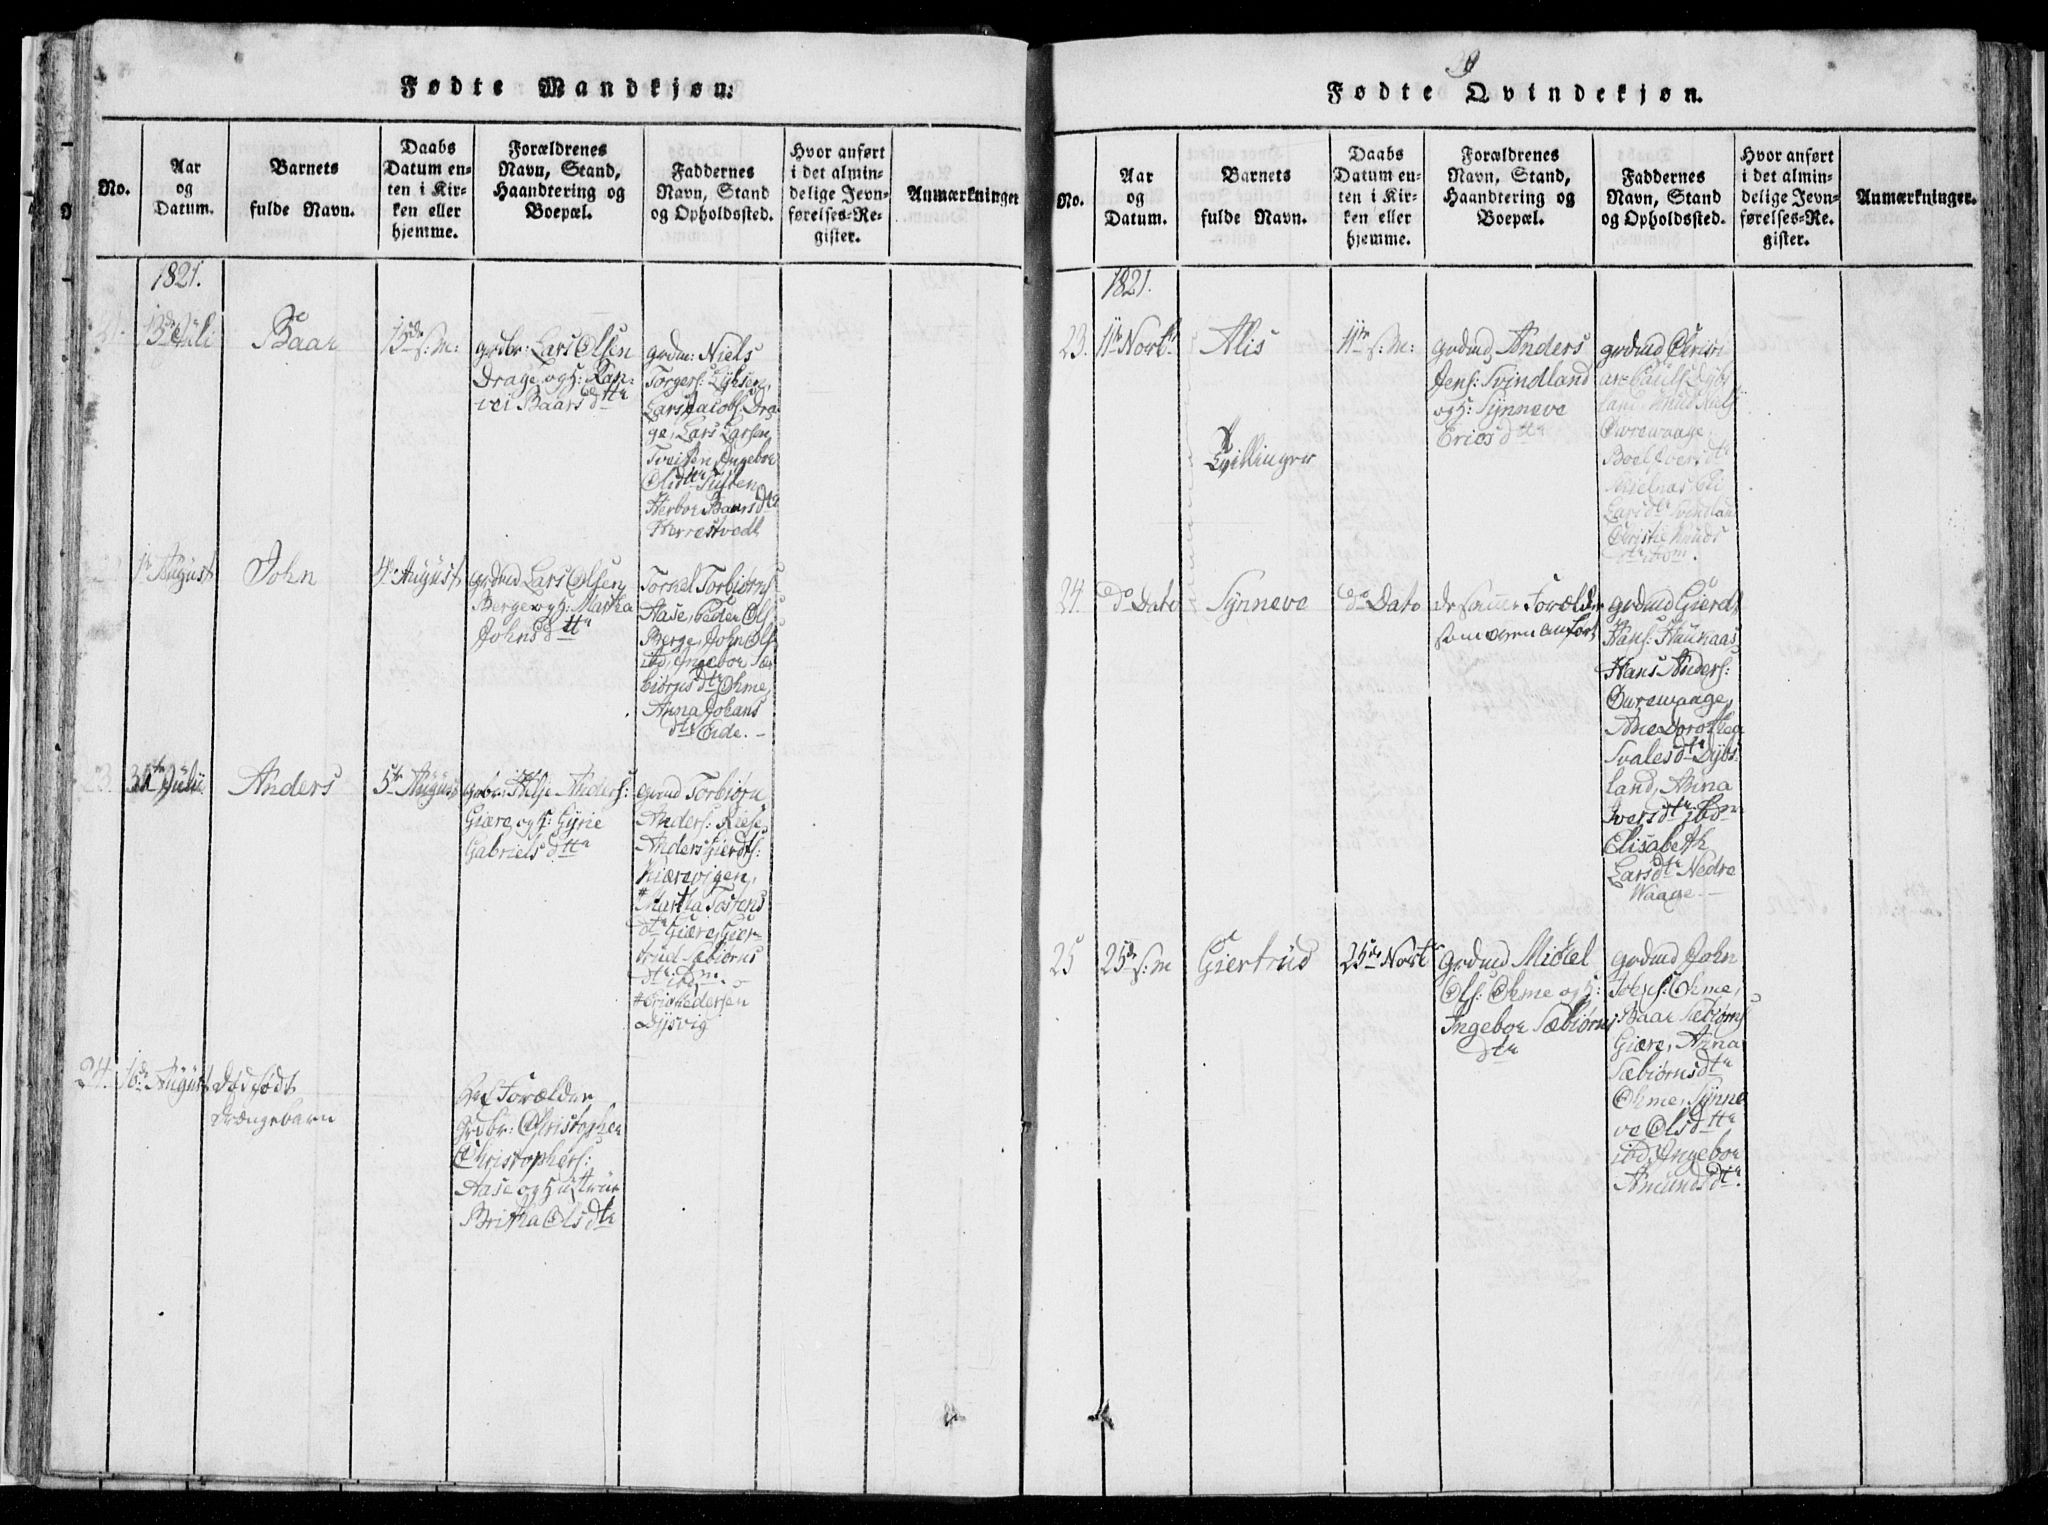 Fødte Mandkjøn:
No.
Aar
og
Datum.
Barnets
fulde Navn.
Daabs
Datum en-
ten i Kir-
ken eller
hjemme.
Forældrenes
Navn, Stand,
Haandtering og
Boepæl.
Faddernes
Navn, Stand
og Opholdssted.
Hvor anført
i det almin-
delige Jevn-
førelses-Re-
gister.
Anmærkninger
1821.
Juli
Baar
s: m:
grdbr: Lars Olsen
Drage og H: Ran-
vei Baars dttr
grdm: Niels
Torgers:
Lars Jacobs: Dra-
ge, Lars Larsen
Ingebor
Olsdttr
Herbor Baars dtr
Herrestvedt
1te August
John
August
grdmd Lars Olsen
Berge og H: Martha
Johns dttr
Tornel Torbiørns:
Aase, Peder Ols:
Berge, John Ols:
ibd, Ingebor Sæ-
biørns dtr Ohme,
Anna Johans
dtr Eide. -
Anders
5te August
grdbr: Anders:
Giære og H: Gyrie
Gabriels dttr
grdmd Torbiørn
Anders:
Anders Gierds:
Kiærevigen,
# Martha Tostens
dtr Giære, Gier-
trud Sæbiørns
dtr ibdm.
# Eric Pedersen
Dysvig
24.
16de August
dødfødt
drængebarn
Forældre
grdbr: Christopher
Christophers:
Aase og Hustrue
Britha Ols dtr
Fødte Qvindekjøn.
No.
Aar
og
Datum.
Barnets
fulde Navn.
Daabs
Datum en-
ten i Kir-
ken eller
hjemme.
Forældrenes
Navn, Stand,
Haandtering og
Boepæl.
Faddernes
Navn, Stand
og Opholdssted.
Hvor anført
i det almin-
delige Jevn-
førelses-Re-
gister.
Anmærkninger.
1821.
23.
11te Novbr
Alis
11te s: m:
grdmd Anders
Jens: Svindland
og H: Synneve
Erics dttr
Tvillinger
grdmd Christi
an Pauls: Dybs
land, Knud Niels:
Øvrewaage,
Boel Ivers dtr
Eli
Lars dtr Svindland
Christie Knuds
dtr ibdm.
24.
do Dato
Synneve
do Dato
de samme Forældre
som oven anført
grdmd Gierdt
Hans: Haukaas
Hans Anders:
Øvrewaage,
Ane Dorothea
Svales dtr Dybs
land, Anna
Ivers dtr ibdm
Elisabeth
Lars dtr Nedre
Waage. -
25
25de s: m
Giertrud
25de Novbr
grdmd Mickel
Ols: Ohme og H:
Ingebor Sæbiørns
dtr
grdmd John
Johns: Ohme,
Baar Sæbiørns:
Giære, Anna
Sæbiørns dtr
Ohme, Synne
ve Ols dttr
ibd, Ingebor
Amunds dtr.